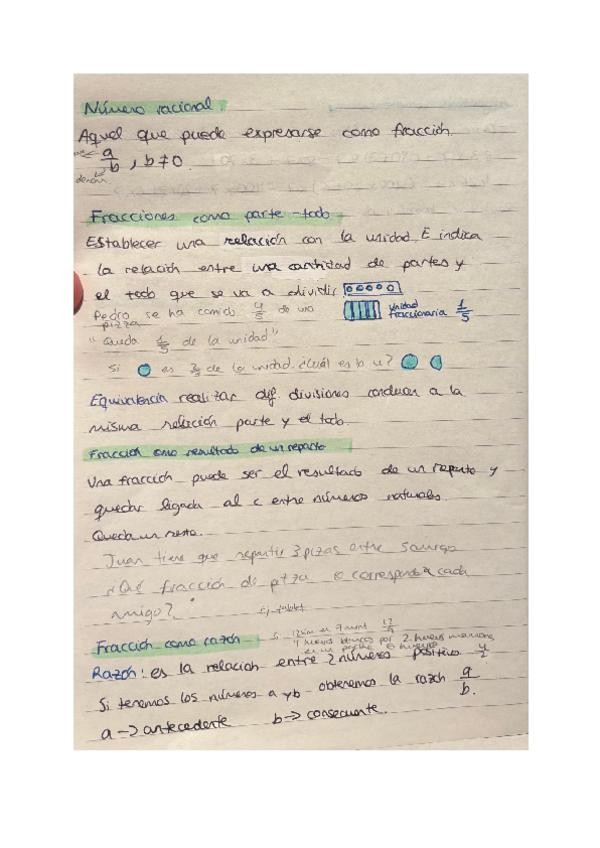 Número racional:
Aquel que puede expresarse como fracción.
a/b, b≠0
Fracciones como parte-todo
Establecer una relación con la unidad E indica
la relación entre una cantidad de partes y
el todo que se va a dividir
Pedro se ha comido 4/5 de una
pizza
unidad
fraccionaria 1/5
"Queda 1/5 de la unidad"
Si es de la unidad ¿Cuál es la u?
Equivalencia realizar dif. divisiones conducen a la
misma relación parte y el todo.
Fracción como resultado de un reparto
Una fracción puede ser el resultado de un reparto y
quedar ligada al c entre números naturales.
Queda un resto.
Juan tiene que repartir 3 pizas entre 5 amigos
¿Qué fracción de pizza corresponde a cada
amigo?
12km en 7 mint 12/7
4 huevos blancos por 2 huevos marrones
en un 6 huevos 4/2
Fracción como razón
Razón: es la relación entre 2 números positivo
Si tenemos los números a y b obtenemos la razón a/b.
a -> antecedente b -> consecuente.